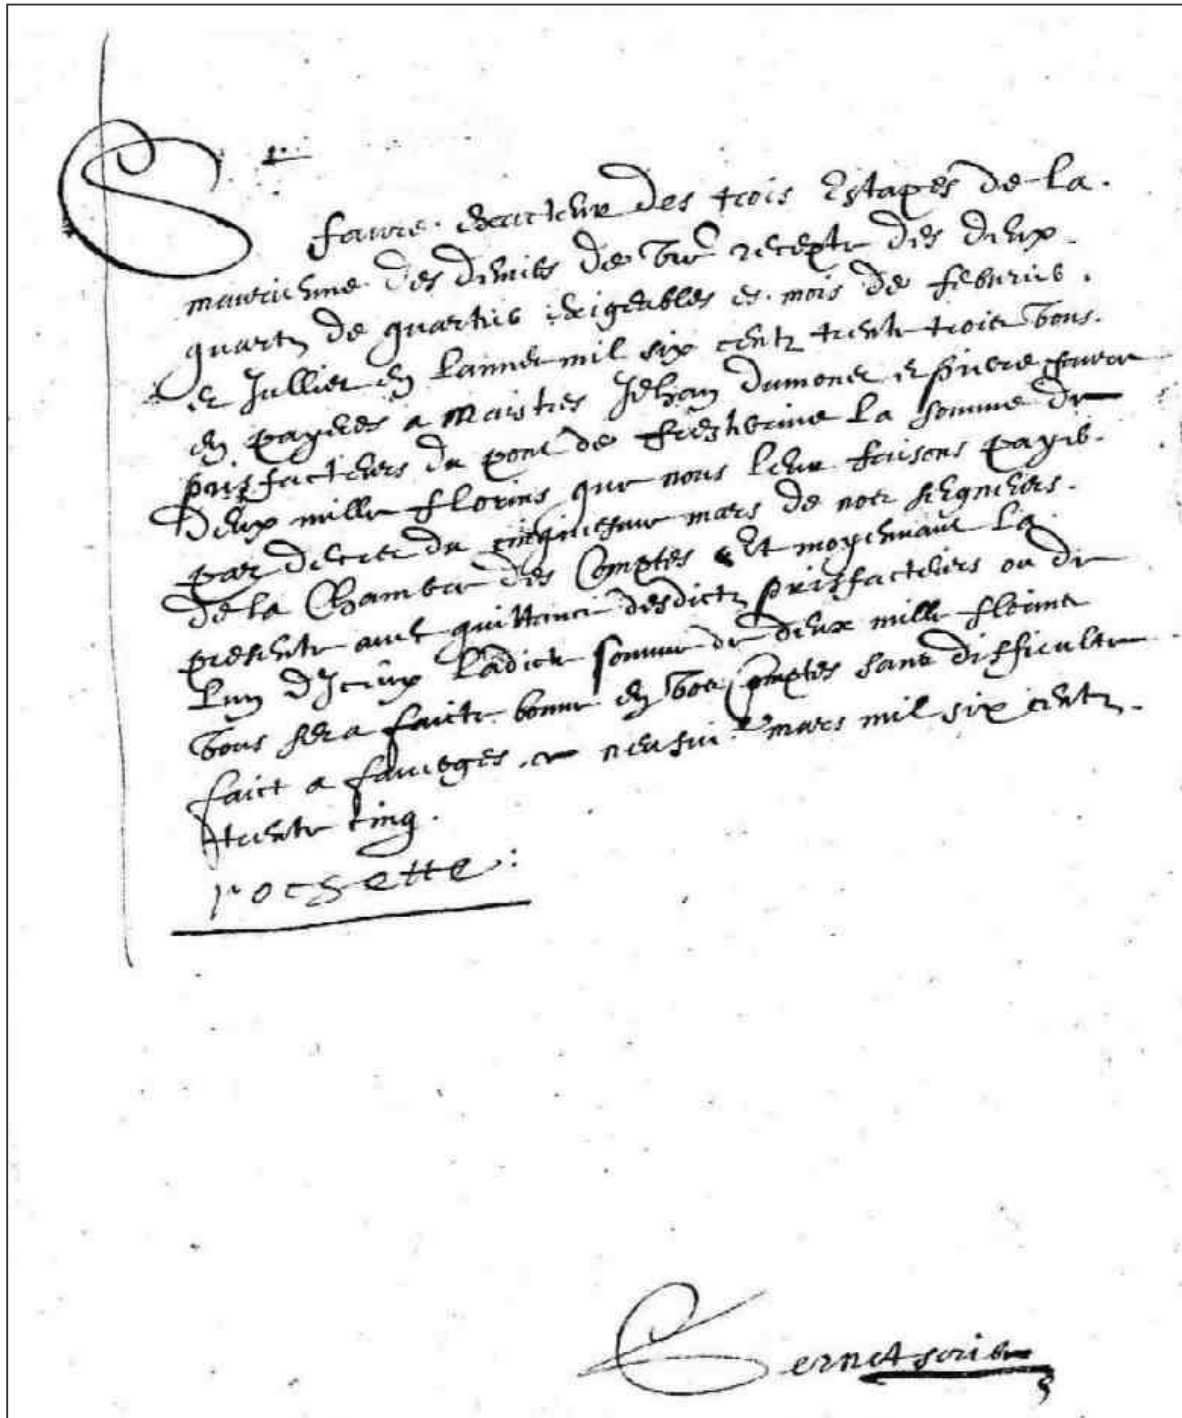 Sr
faure exacteur des trois Estapes de la
maurienne des deniers de vre recepte des deux
quartz de quartier exigeables es mois de febvrier
et Jullier en lannee mil six centz trente trois vous
en payeres a maistres Jehan dumonet et pierre faure
prisfacteurs du pont de fresherine la somme de
deux mille florins que nous leur faisons payer
par decret du cinquiesme mars de nos seigneurs
de la Chambre des Comptes Et moyennant la
presente avec quittance desdictz prisfacteurs ou de
lun dIceux ladicte somme de deux mille florins
vous sera faicte bonne en vos comptes sans difficulte
faict a faverges ce neufvie mars mil six centz
trente cinq.
rochette: